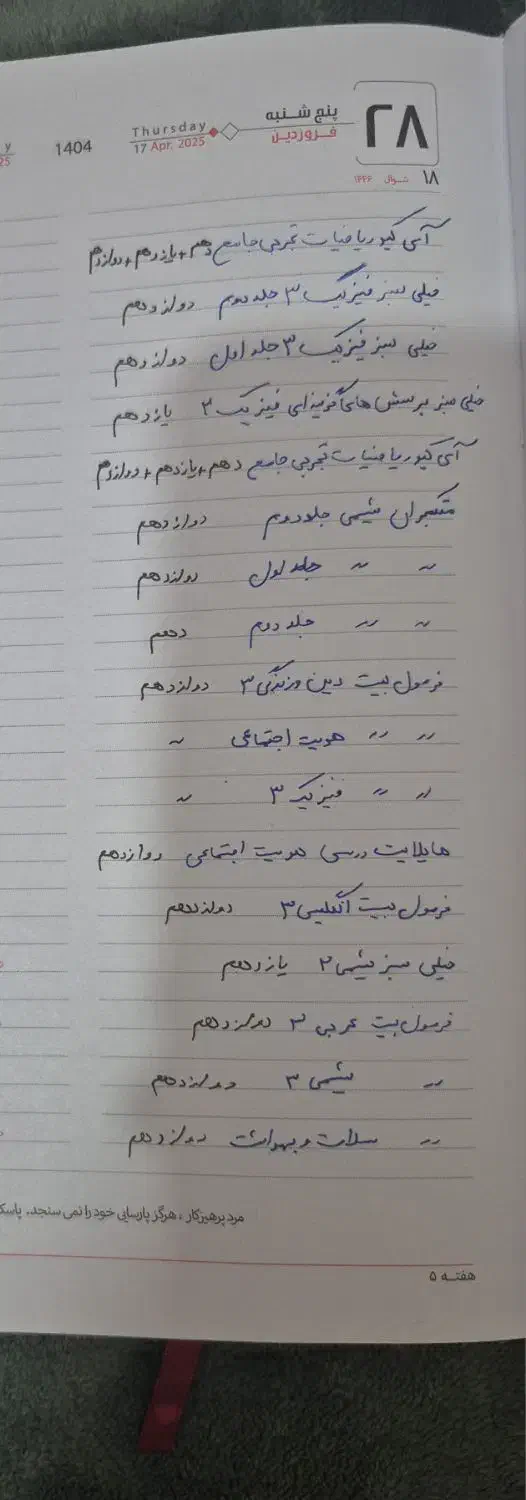 ۲۸
پنج شنبه
فروردین
Thursday
17 Apr. 2025
1404
y
25
۱۸ شوال ۱۴۴۶
آی کیو ریاضیات تجربی جامع دهم + یازدهم + دوازدهم
خیلی سبز فیزیک ۳ جلد دوم دوازدهم
خیلی سبز فیزیک ۳ جلد اول دوازدهم
خیلی سبز پرسش های گزینه ای فیزیک ۲ یازدهم
آی کیو ریاضیات تجربی جامع دهم + یازدهم + دوازدهم
مبتکران شیمی جلد دوم دوازدهم
〃 〃 جلد اول دوازدهم
〃 〃 جلد دوم دهم
فرمول بیست دین و زندگی ۳ دوازدهم
〃 〃 هویت اجتماعی 〃
〃 〃 فیزیک ۳ 〃
هایلایت درسی هویت اجتماعی دوازدهم
فرمول بیست انگلیسی ۳ دوازدهم
خیلی سبز شیمی ۲ یازدهم
فرمول بیست عربی ۳ دوازدهم
〃 شیمی ۳ دوازدهم
〃 سلامت و بهداشت دوازدهم
مرد پرهیزکار ، هرگز پارسایی خود را نمی سنجد. پاسکا
هفته ۵